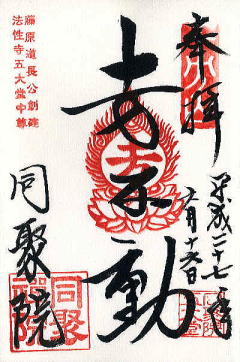 奉拝
平成二十七年
六月十六日
十万不動
藤原道長公創建
法性寺五大堂中尊
同聚院
同聚院